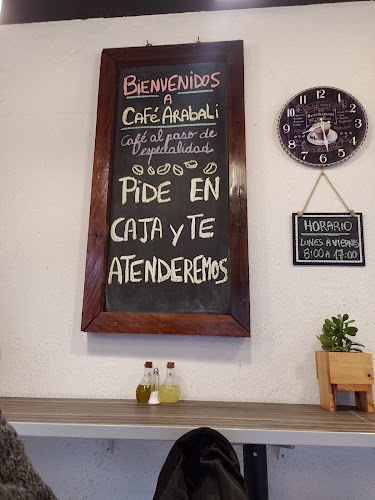 BIENVENIDOS
A
CAFÉ ARABALI
Café al paso de
especialidad
PIDE EN
CAJA Y TE
ATENDEREMOS
12
1
2
3
4
5
6
7
8
9
10
11
HORARIO
LUNES A VIERNES
8:00 A 17:00